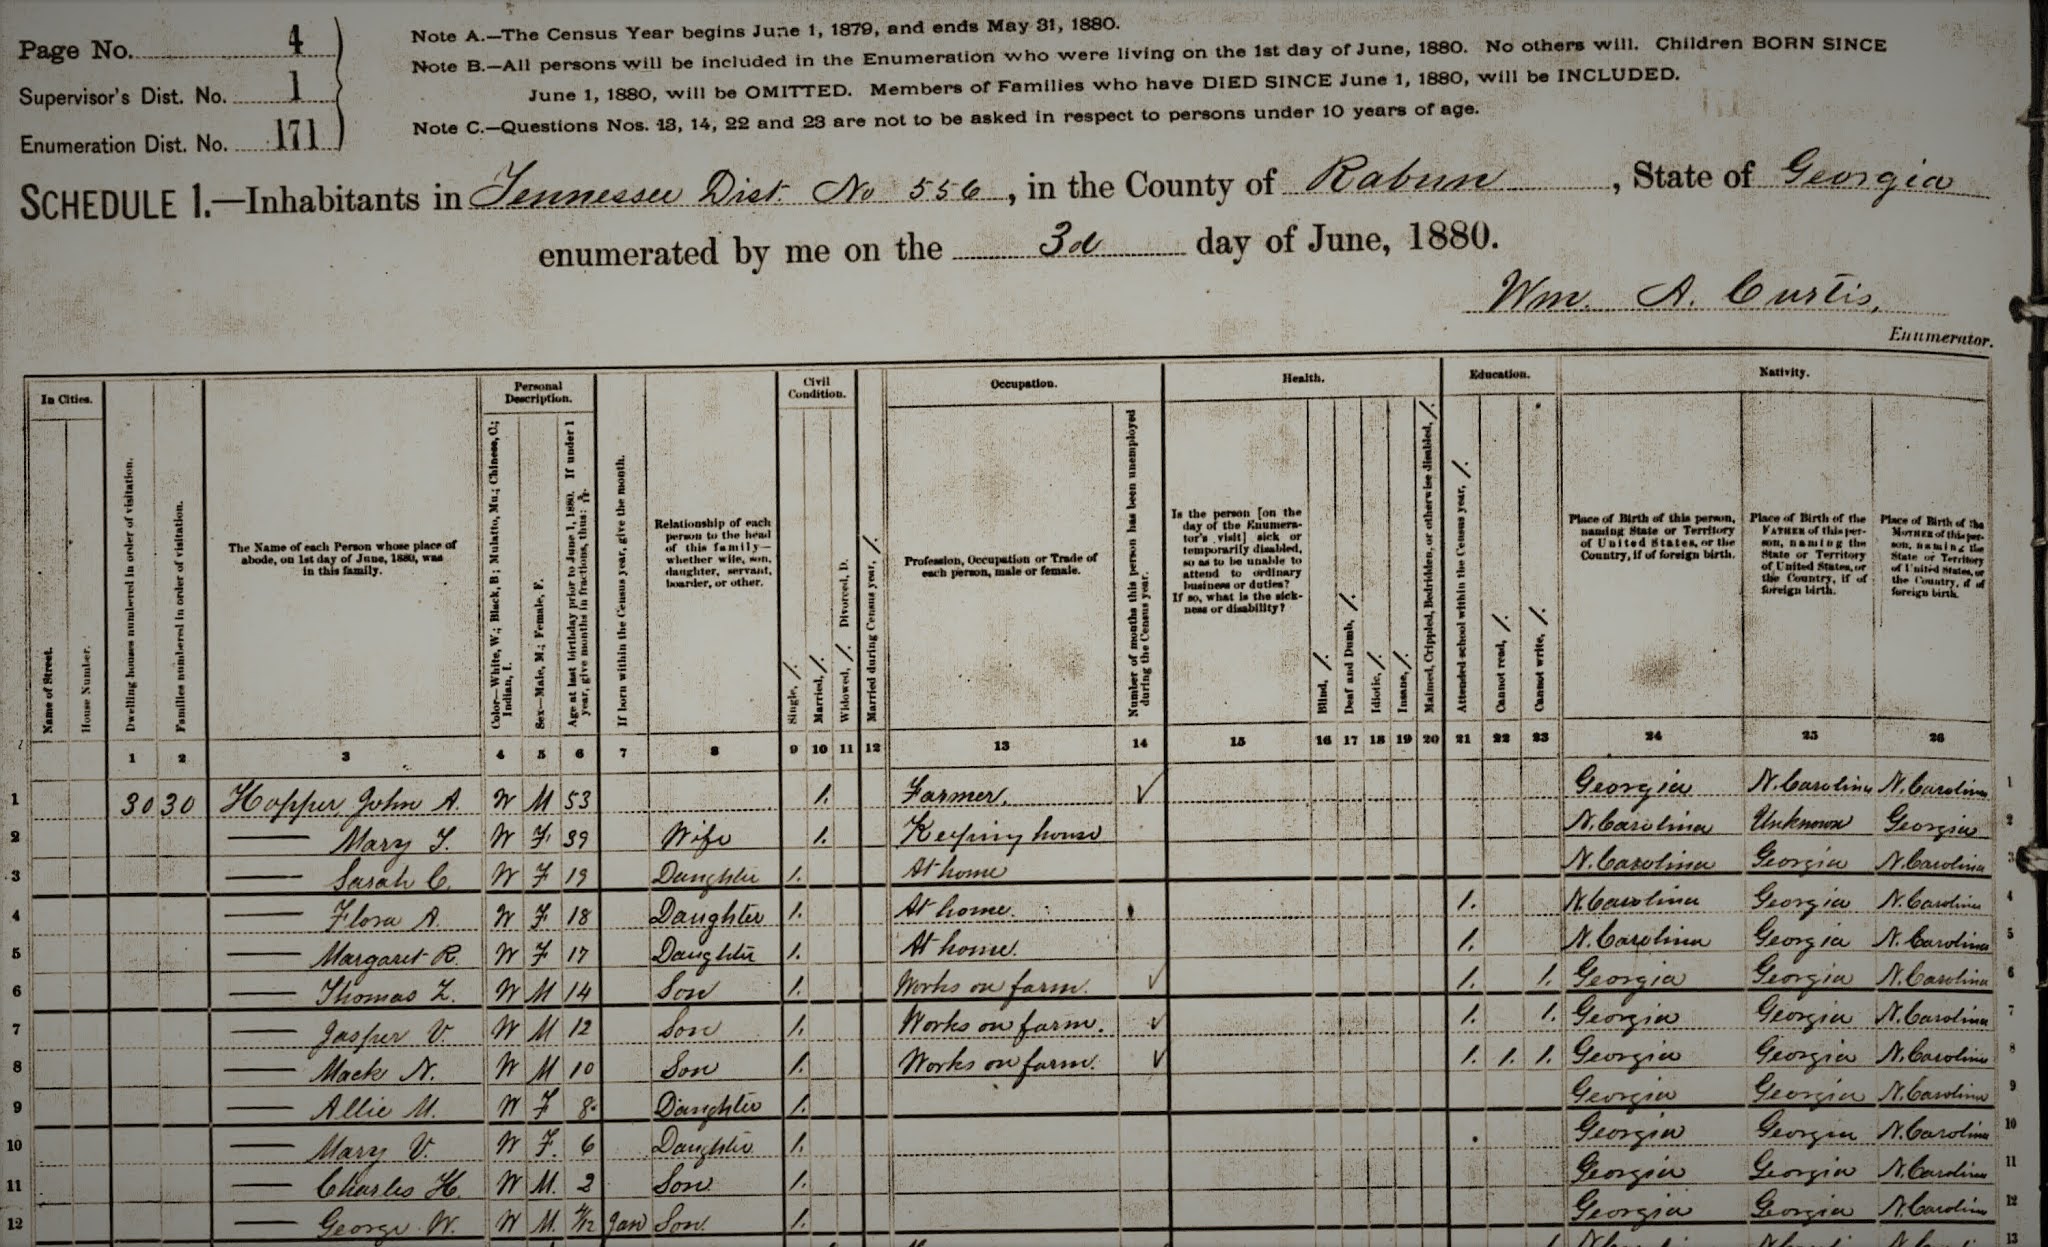 Page No. 4
Supervisor's Dist. No. 1
Enumeration Dist. No. 171
Note A.—The Census Year begins June 1, 1879, and ends May 31, 1880.
Note B.—All persons will be included in the Enumeration who were living on the 1st day of June, 1880. No others will. Children BORN SINCE
June 1, 1880, will be OMITTED. Members of Families who have DIED SINCE June 1, 1880, will be INCLUDED.
Note C.—Questions Nos. 13, 14, 22 and 23 are not to be asked in respect to persons under 10 years of age.
SCHEDULE 1.—Inhabitants in Tennessee Dist. No 556, in the County of Rabun, State of Georgia
enumerated by me on the 3d day of June, 1880.
Wm. A. Curtis,
Enumerator.
In Cities.
Name of Street.
House Number.
Dwelling houses numbered in order of visitation.
Families numbered in order of visitation.
The Name of each Person whose place of
abode, on 1st day of June, 1880, was
in this family.
Personal
Description.
Color—White, W.; Black, B.; Mulatto, Mu.; Chinese, C.;
Indian, I.
Sex—Male, M.; Female, F.
Age at last birthday prior to June 1, 1880. If under 1
year, give months in fractions, thus: 3/12.
If born within the Census year, give the month.
Relationship of each
person to the head
of this family—
whether wife, son,
daughter, servant,
boarder, or other.
Civil
Condition.
Single, /.
Married, /.
Widowed, /. Divorced, D.
Married during Census year, /.
Occupation.
Profession, Occupation or Trade of
each person, male or female.
Number of months this person has been unemployed
during the Census year.
Health.
Is the person [on the
day of the Enumera-
tor's visit] sick or
temporarily disabled,
so as to be unable to
attend to ordinary
business or duties?
If so, what is the sick-
ness or disability?
Blind, /.
Deaf and Dumb, /.
Idiotic, /.
Insane, /.
Maimed, Crippled, Bedridden, or otherwise disabled, /.
Education.
Attended school within the Census year, /.
Cannot read, /.
Cannot write, /.
Nativity.
Place of Birth of this person,
naming State or Territory
of United States, or the
Country, if of foreign birth.
Place of Birth of the
FATHER of this per-
son, naming the
State or Territory
of United States, or
the Country, if of
foreign birth.
Place of Birth of the
MOTHER of this per-
son, naming the
State or Territory
of United States, or
the Country, if of
foreign birth.
1 2 3 4 5 6 7 8 9 10 11 12 13 14 15 16 17 18 19 20 21 22 23 24 25 26
1 30 30 Hopper, John A. W M 53 /. Farmer. ✓ Georgia N. Carolina N. Carolina 1
2 — Mary T. W F 39 Wife /. Keeping house N. Carolina Unknown Georgia 2
3 — Sarah C. W F 19 Daughter /. At home N. Carolina Georgia N. Carolina 3
4 — Flora A. W F 18 Daughter /. At home. /. N. Carolina Georgia N. Carolina 4
5 — Margaret R. W F 17 Daughter /. At home. /. N. Carolina Georgia N. Carolina 5
6 — Thomas Z. W M 14 Son /. Works on farm. ✓ /. /. Georgia Georgia N. Carolina 6
7 — Jasper V. W M 12 Son /. Works on farm. ✓ /. /. Georgia Georgia N. Carolina 7
8 — Mack N. W M 10 Son /. Works on farm. ✓ /. /. /. Georgia Georgia N. Carolina 8
9 — Allie M. W F 8 Daughter /. Georgia Georgia N. Carolina 9
10 — Mary V. W F. 6 Daughter /. Georgia Georgia N. Carolina 10
11 — Charles H. W M. 2 Son. /. Georgia Georgia N. Carolina 11
12 — George W. W M. Jan Son. /. Georgia Georgia N. Carolina 12
13